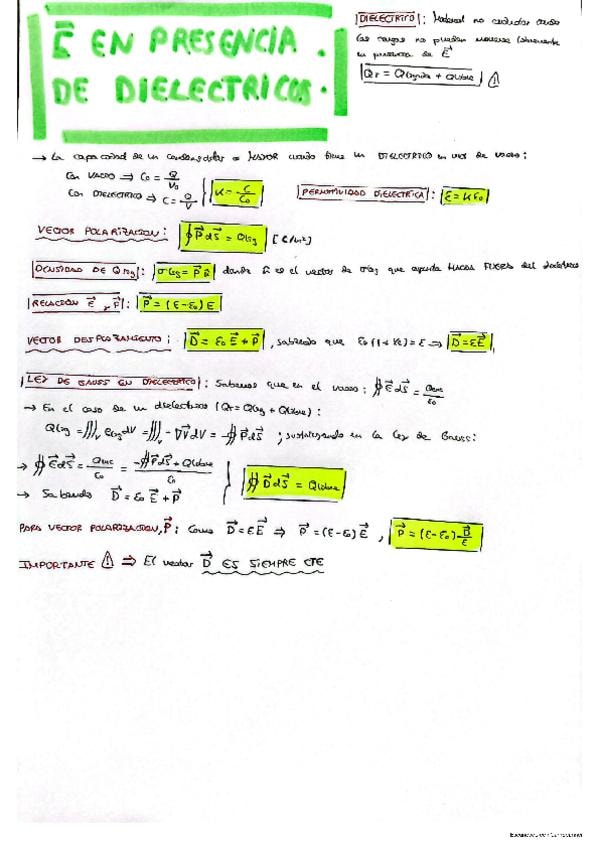 E⃗ EN PRESENCIA
DE DIELECTRICOS.
DIELECTRICO: Material no conductor donde
las cargas no pueden moverse libremente
en presencia de E⃗
Q_T = Q ligada + Q libre
→ La capacidad de un condensador es MAYOR cuando tiene un DIELECTRICO en vez de vacío:
Con VACÍO ⇒ C₀ = Q/V₀
Con DIELECTRICO ⇒ C = Q/V
K = C/C₀
PERMITIVIDAD DIELECTRICA: ε = Kε₀
VECTOR POLARIZACION: ∮P⃗dS⃗ = Qlig [C/m²]
DENSIDAD DE Qlig: σlig = P⃗ n̂ donde n̂ es el vector de σlig que apunta HACIA FUERA del dieléctrico
RELACION E⃗ y P⃗: P⃗ = (ε-ε₀)E
VECTOR DESPLAZAMIENTO: D⃗ = ε₀E⃗ + P⃗, sabiendo que ε₀(1+χe) = ε ⇒ D⃗ = εE⃗
LEY DE GAUSS EN DIELECTRICO: Sabemos que en el vacío: ∯E⃗dS⃗ = Qenc/ε₀
→ En el caso de un dielectrico (Q_T = Qlig + Qlibre):
Qlig = ∭ᵥ ρlig dV = ∭ᵥ -∇P⃗dV = -∯P⃗dS⃗; sustituyendo en la Ley de Gauss:
→ ∯E⃗dS⃗ = Qenc/ε₀ = (-∯P⃗dS⃗ + Qlibre)/ε₀
→ Sabiendo D⃗ = ε₀E⃗ + P⃗
∯D⃗dS⃗ = Qlibre
PARA VECTOR POLARIZACION, P⃗: Como D⃗ = εE⃗ ⇒ P⃗ = (ε-ε₀)E⃗, P⃗ = (ε-ε₀)D⃗/ε
IMPORTANTE ⚠ ⇒ El vector D⃗ ES SIEMPRE CTE